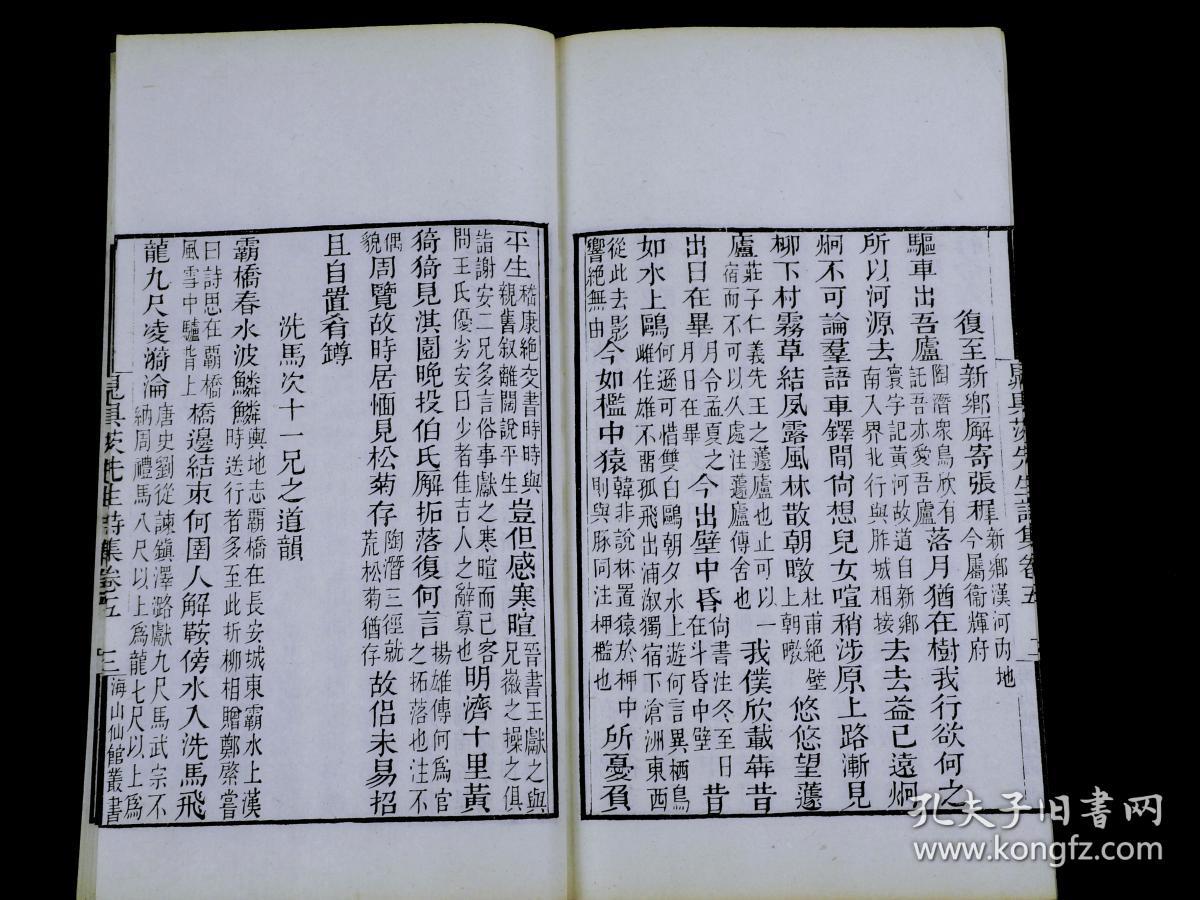 復至新鄉解寄張
新鄉漢河內地
今屬衞輝府
驅車出吾廬
陶潛衆鳥欣有
託吾亦愛吾廬
落月猶在樹我行欲何之
所以河源去
寰宇記黃河故道自新鄉
南入界北行與胙城相接
去去益已遠炯
炯不可論羣語車鐸間尚想兒女喧稍涉原上路漸見
柳下村霧草結夙露風林散朝暾
杜甫絕壁
上朝暾
悠悠望蘧
廬
莊子仁義先王之蘧廬也止可以一
宿而不可以久處注蘧廬傳舍也
我僕欣載犇昔
出日在畢
月令孟夏之
月日在畢
今出壁中昏
尚書注冬至日
在斗昏中壁
昔
如水上鷗
何遜可惜雙白鷗朝夕水上遊何言異栖鳥
雌住雄不畱孤飛出浦溆獨宿下滄洲東西
從此去影
響絕無由
今如檻中猿
韓非說林置猿於柙中
則與豚同注柙檻也
所憂負
平生
嵇康絕交書時時與
親舊敘離闊說平生
豈但感寒暄
晉書王獻之與
兄徽之操之俱
詣謝安二兄多言俗事獻之寒暄而已客
問王氏優劣安曰少者佳吉人之辭寡也
明濟十里黃
猗猗見淇園晚投伯氏廨拓落復何言
揚雄傳何爲官
之拓落也注不
偶
貌
周覽故時居愐見松菊存
陶潛三徑就
荒松菊猶存
故侶未易招
且自置肴罇
洗馬次十一兄之道韻
霸橋春水波鱗鱗
輿地志霸橋在長安城東霸水上漢
時送行者多至此折柳相贈鄭綮嘗
曰詩思在霸橋
風雪中驢背上
橋邊結束何圉人解鞍傍水入洗馬飛
龍九尺凌漪淪
唐史劉從諫鎮澤潞獻九尺馬武宗不
納周禮馬八尺以上爲龍七尺以上爲
晁具茨先生詩集卷五
二
海山仙館叢書
孔夫子旧书网
www.kongfz.com